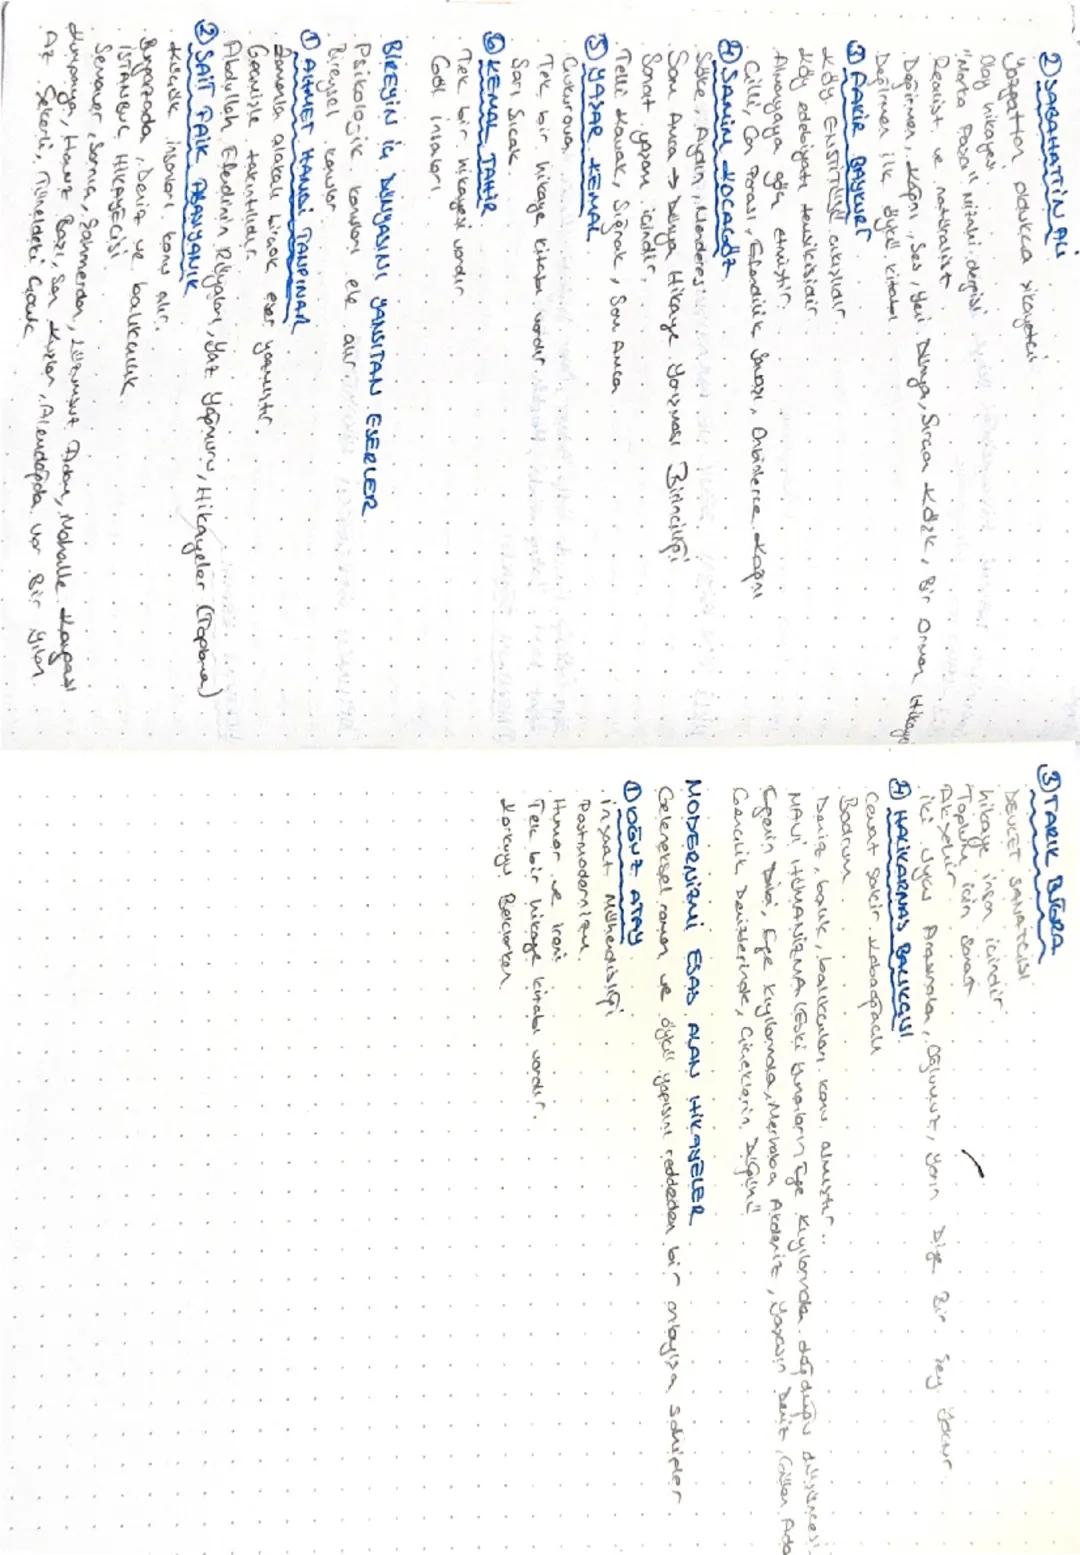 2) SABAHATTİN ALİ
Yozgattan oldukca şikayetci
Olay hikayesi
"Marko Paşa" mizahi dergisi
Realist ve natüralist
Değirmen, Kağnı, Ses, Yeni Dünya, Sırca Köşk, Bir Orman Hikaye
Değirmen ilk öykü kitabı
③ FAKİR BAYKURT
Köy Enstitüsü çıkışlıdır
Köy edebiyatı temsilcisidir
Almanyaya göç etmiştir.
Çilli, Can Parası, Efendilik Savaşı, Onbinlerce Kağnı
④ SAMİM KOCAGÖZ
Söke, Aydın, Menderes
Sam Amca → Dünya Hikaye Yarışması Birinciliği
Sanat yaşam içindir.
Telli Kavak, Sığınak, Sam Amca
⑤ YAŞAR KEMAL
Çukurova
Tek bir hikaye kitabı vardır
Sarı Sıcak
⑥ KEMAL TAHİR
Tek bir hikayesi vardır
Göl İnsaları
BİREYİN İÇ DÜNYASINI YANSITAN ESERLER
Psikolojik konuları ele alır
Bireysel konular
① AHMET HAMDİ TANPINAR
Zamanla alakalı birçok eser yazmıştır.
Geçmişle takıntılıdır.
Abdullah Efendinin Rüyaları, Yaz Yağmuru, Hikayeler (Toplama)
② SAİT FAİK ABASIYANIK
Küçük insanları konu alır.
Burgazada, Deniz ve balıkcılık
İSTANBUL HİKAYECİSİ
Semaver, Sarnıç, Şahmerdan, Lüzumsuz Adam, Mahalle Kavgası
Kumpanya, Havuz Başı, Son Kuşlar, Alemdağda Var Bir Yılan
Az Şekerli, Tüneldeki Çocuk
③ TARIK BUĞRA
DEVLET SANATCISI
hikaye insan icindir
Toplum için sanat
Akşehir
İki Uyku Arasından, Oğlumuz, Yarın Diye Bir Şey Yoktur
④ HALİKARNAS BALIKCISI
Cevat Şakir Kabaağaçlı
Bodrum
Deniz, balık, balıkcıları konu almıştır..
MAVİ HÜMANİZMA (Eski Yunanların Ege Kıyılarında doğduğu düşüncesi
Egenin Dibi, Ege Kıyılarında, Merhaba Akdeniz, Yaşasın Deniz, Gülen Ada
Gençlik Denizlerinde, Çiçeklerin Düğünü
MODERNİZMİ ESAS ALAN HİKAYELER
Geleneksel roman ve öykü yapısını reddeden bir anlayışa sahipler
① OĞUZ ATAY
inşaat Mühendisliği
Postmodernizm
Humor ve ironi
Tek bir hikaye kitabı vardır.
Korkuyu Beklerken